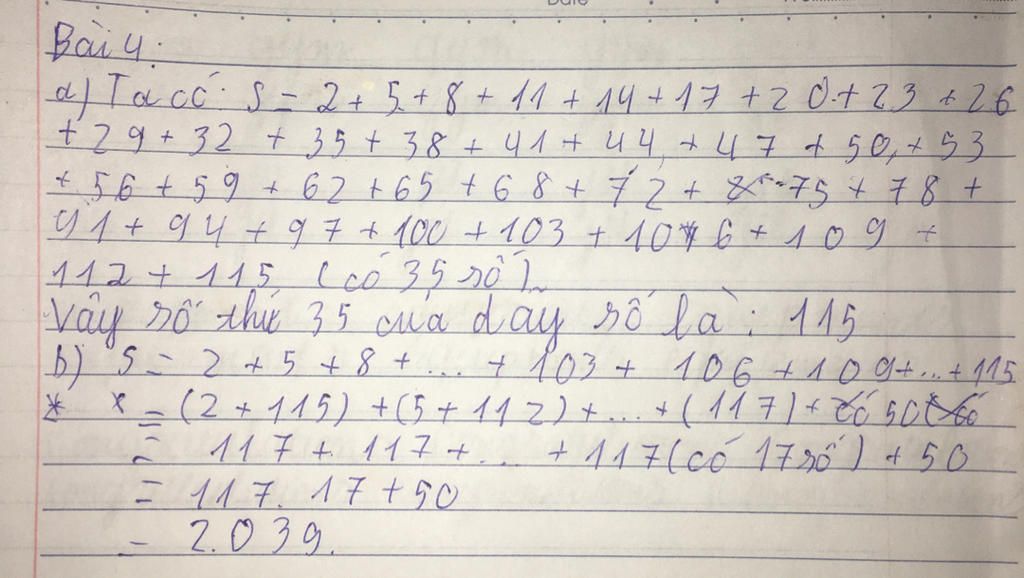 Bài 4:
a) Ta có: S = 2 + 5 + 8 + 11 + 14 + 17 + 20 + 23 + 26
+ 29 + 32 + 35 + 38 + 41 + 44 + 47 + 50 + 53
+ 56 + 59 + 62 + 65 + 68 + 72 + 75 + 78 +
91 + 94 + 97 + 100 + 103 + 106 + 109 +
112 + 115 (có 35 số)
Vậy số thứ 35 của dãy số là: 115
b) S = 2 + 5 + 8 + ... + 103 + 106 + 109 + ... + 115
* x = (2 + 115) + (5 + 112) + ... + (117) + 50
= 117 + 117 + ... + 117 (có 17 số) + 50
= 117. 17 + 50
= 2.039.